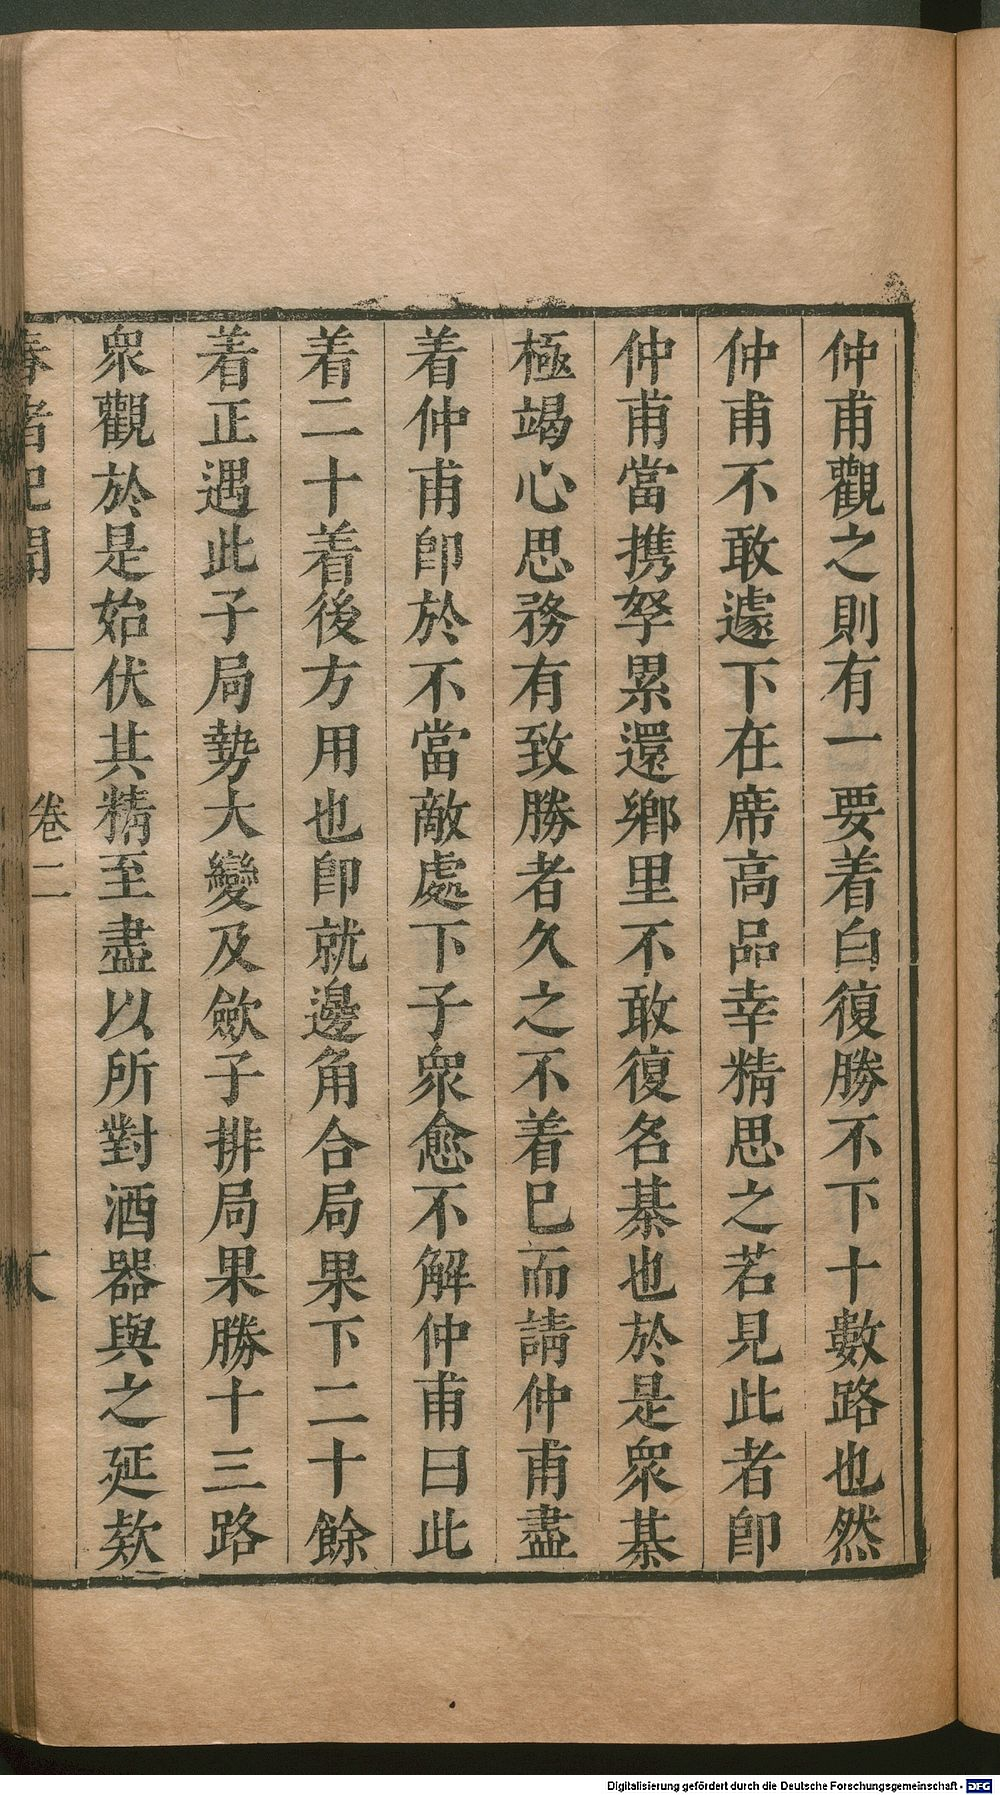 仲甫觀之則有一要着白復勝不下十數路也然
仲甫不敢遽下在席高品幸精思之若見此者卽
仲甫當携孥累還鄉里不敢復名棊也於是衆棊
極竭心思務有致勝者久之不着已而請仲甫盡
着仲甫卽於不當敵處下子衆愈不解仲甫曰此
着二十着後方用也卽就邊角合局果下二十餘
着正遇此子局勢大變及歛子排局果勝十三路
衆觀於是始伏其精至盡以所對酒器與之延欵
春渚紀聞
卷二
Digitalisierung gefördert durch die Deutsche Forschungsgemeinschaft - DFG